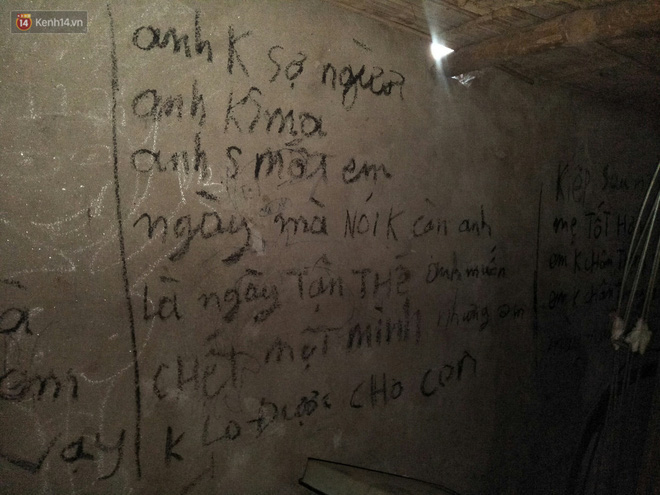 14 Kenh14.vn
anh K sợ người
anh KS ma
anh S mất em
ngày mà NÓI K cần anh
Là ngày TẬN THẾ anh muốn
CHẾT MỘT MÌNH nhưng em
K Lo ĐượC CHO CON
à
em
vậy
Kiếp sau
mẹ TỐT
em K